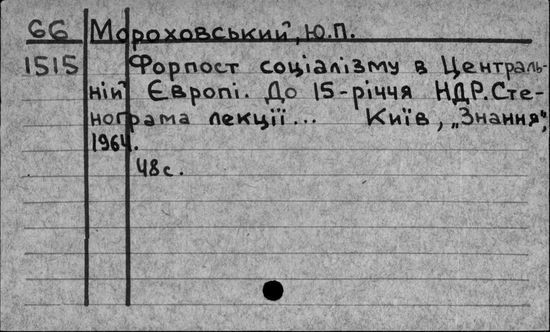 66 Мороховський, Ю.П.
1515 Форпост соціалізму в Централь-
ній Європі. До 15-річчя НДР. Сте-
нограма лекції... Київ, „Знання",
1964.
48 с.